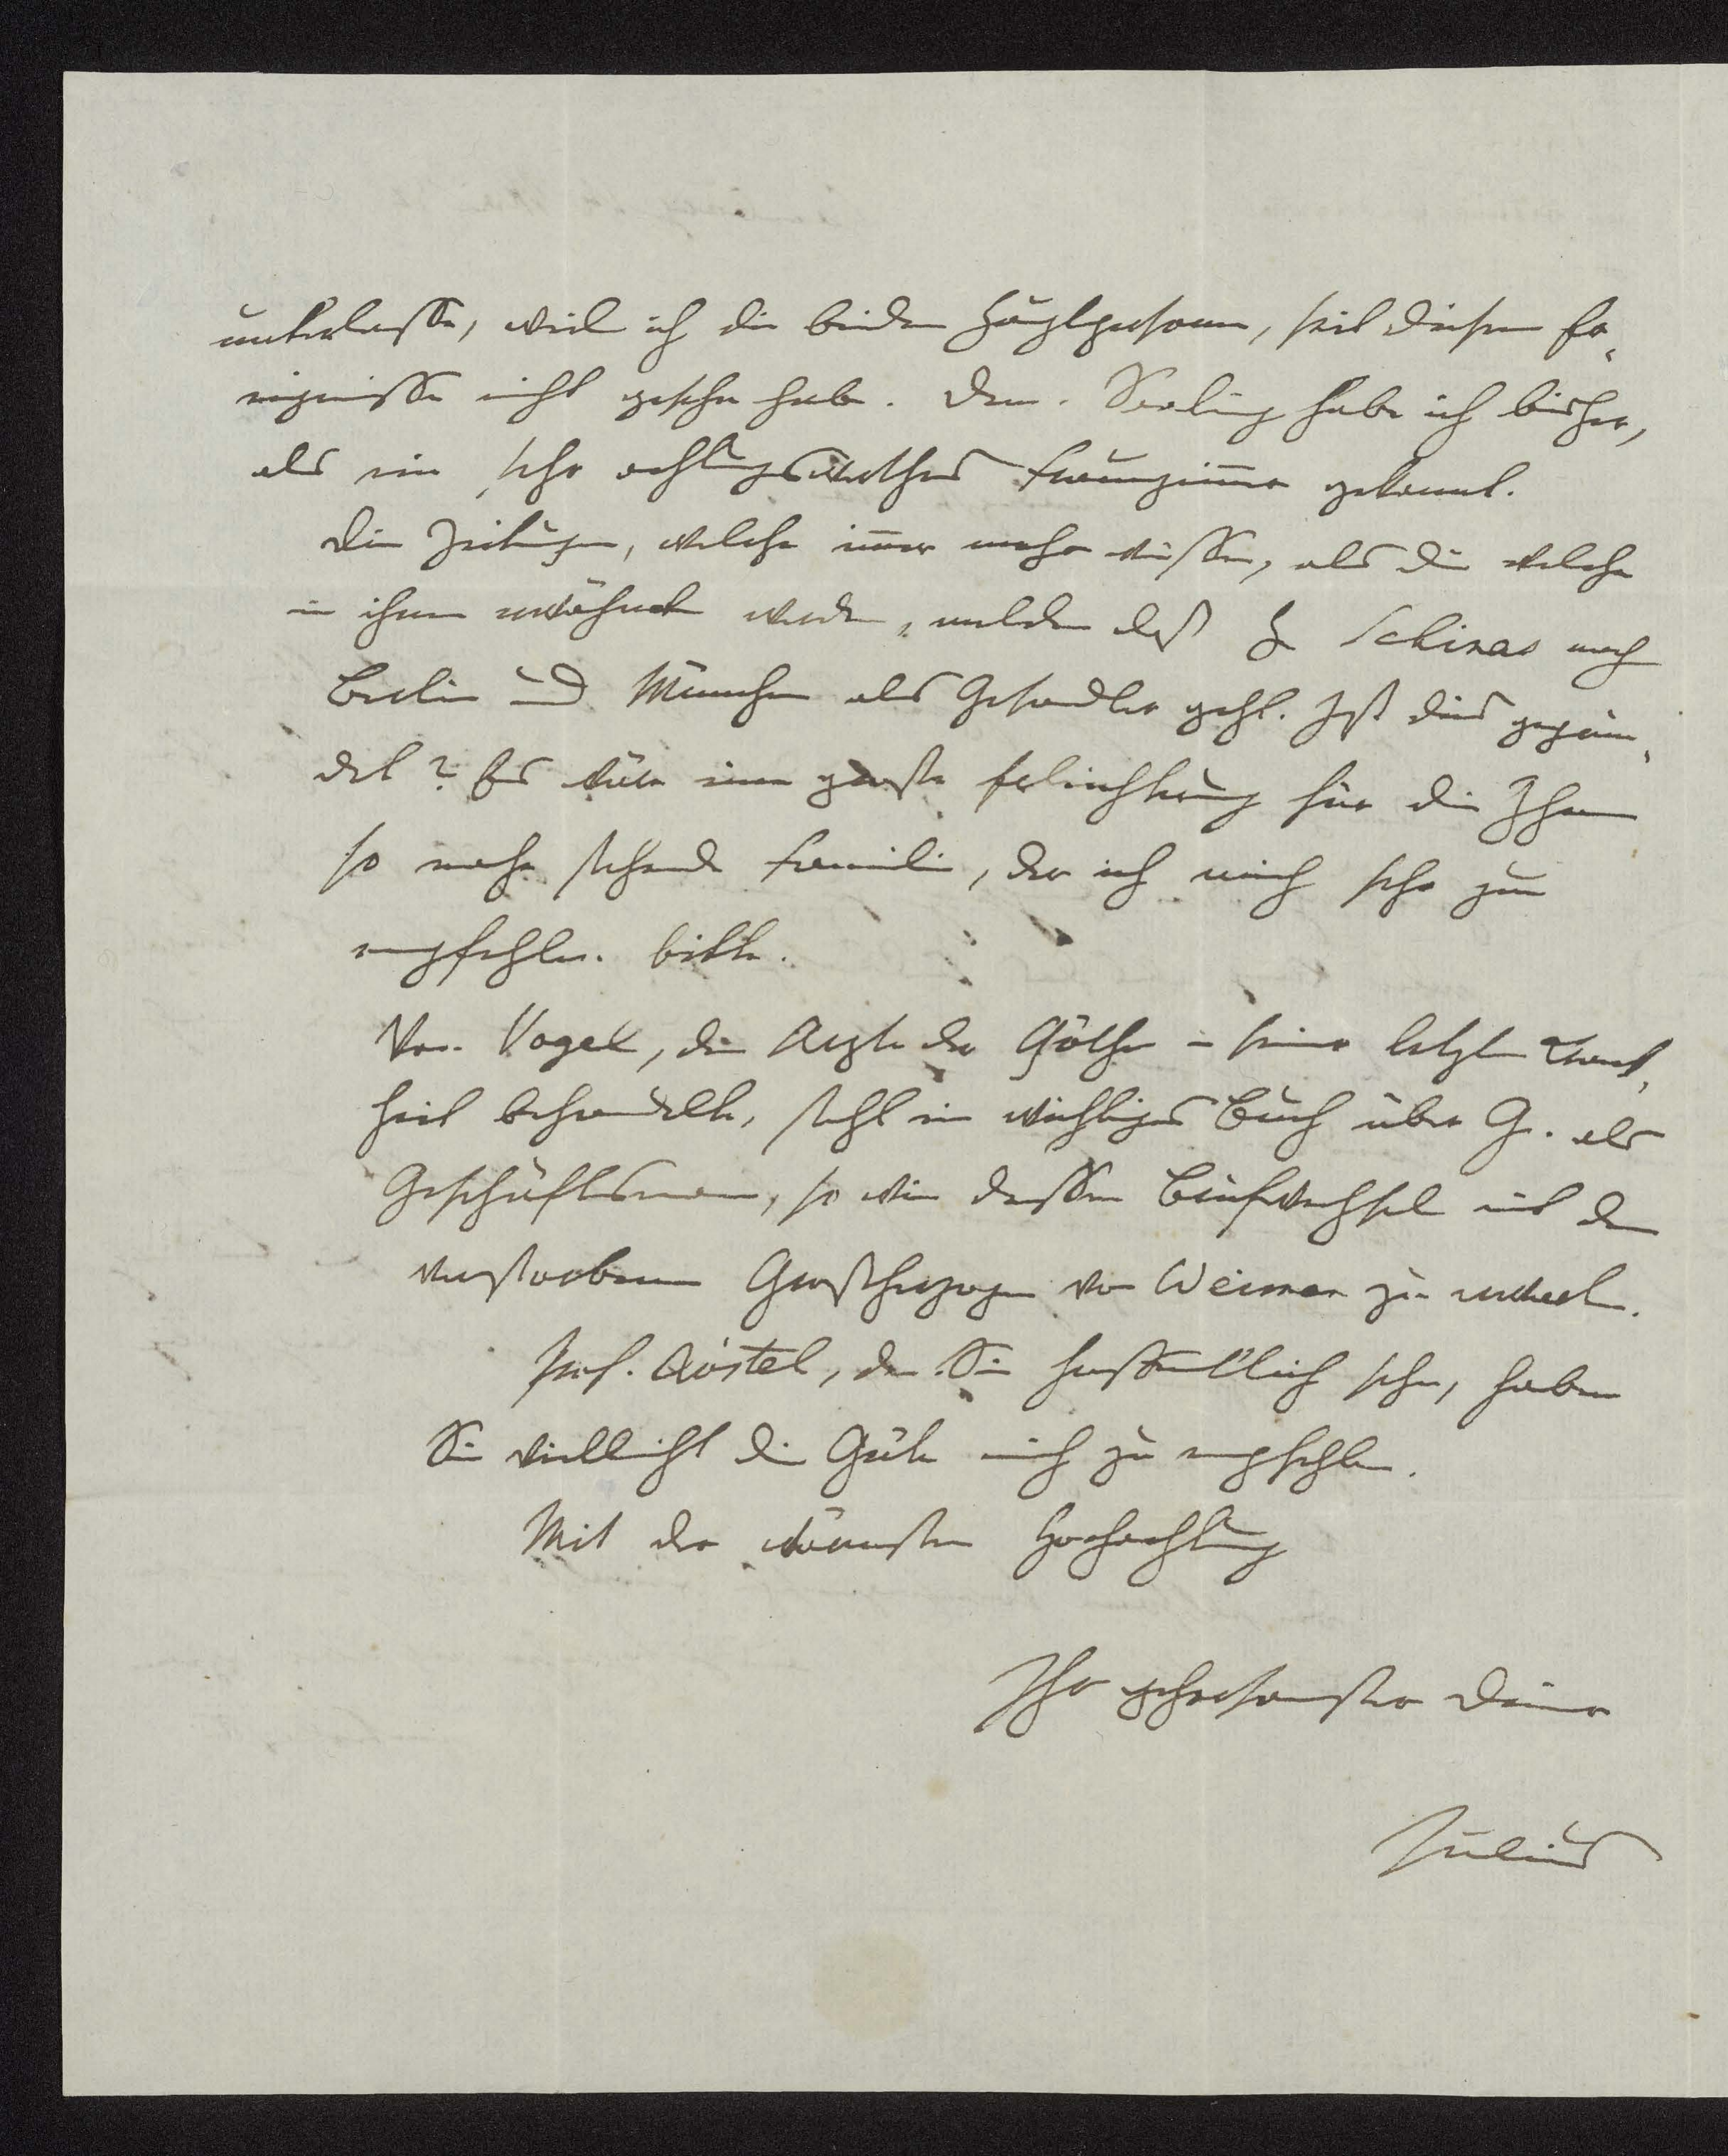 unterlasse, weil ich die beiden Hauptpersonen, seit diesem Er-
eignisse nicht gesehn habe. Dem. Serling habe ich bisher,
als ein sehr achtungswerthes Frauenzimmer gekannt.
Die Zeitungen, welche immer mehr wissen, als die welche
in ihnen erwähnt werden, melden daß H Schinas nach
Berlin und München als Gesandter geht. Ist dies gegrün-
det? Es wäre eine große Erleichterung für die Ihnen
so nahe stehende Familie, der ich mich sehr zu
empfehlen bitte.
Von Vogel, dem Arzte der Göthe in seiner letzten Krank-
heit behandelte, steht ein wichtiges Buch über G. als
Geschäftsmann, so wie dessen Briefwechsel mit dem
verstorbenen Großherzoge von Weimar zu erwarten.
Prof. Röstel, den Sie hoffentlich sehn, haben
Sie vielleicht die Güte mich zu empfehlen.
Mit der wärmsten Hochachtung
Ihr gehorsamster Diener
Julius